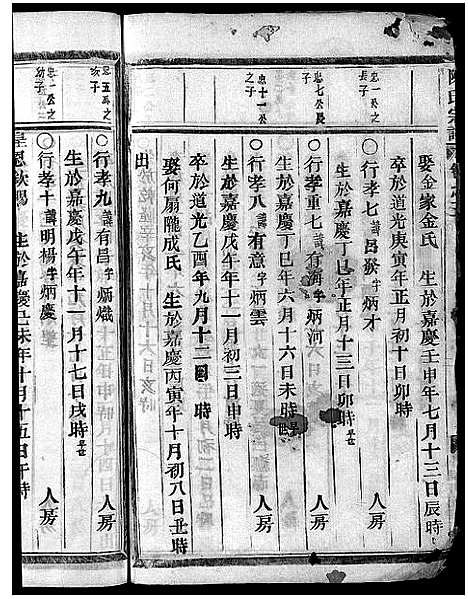 陳氏宗譜
娶金家金氏 生於嘉慶壬申年七月十三日辰時
卒於道光庚寅年正月初十日卯時
忠一公之長子
○行孝七諱昌發字炳才 人房
生於嘉慶丁巳年正月十三日卯時
忠七公長子
○行孝重七諱有河字炳河 人房
生於嘉慶丁巳年六月十六日未時
忠十一公之子
○行孝八諱有意字炳雲 人房
生於嘉慶戊午年十一月初三日申時
卒於道光乙酉年九月十二日 時
娶何扇隴成氏 生於嘉慶丙寅年十月初八日丑時
出
忠五公之次子
○行孝九諱有昌字炳熾 人房
生於嘉慶戊午年十一月十七日戌時
忠一公之幼子
○行孝十諱明楊字炳慶 人房
皇恩欽賜 生於嘉慶己未年十月十五日午時